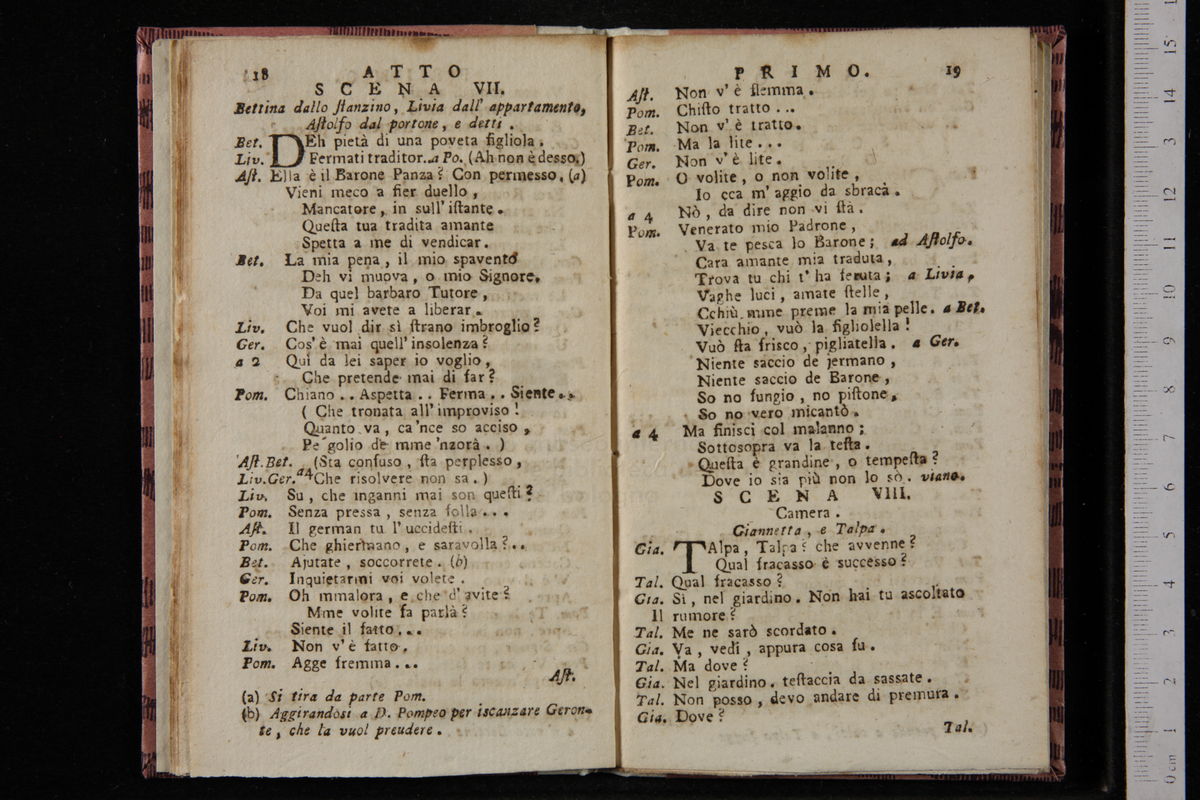 18 ATTO
SCENA VII.
Bettina dallo ſtanzino, Livia dall' appartamento,
Aſtolfo dal portone, e detti.
Bet. DEh pietà di una poveta figliola.
Liv. Fermati traditor. a Po. (Ah non è desso.)
Aſt. Ella è il Barone Panza? Con permesso. (a)
Vieni meco a fier duello,
Mancatore, in sull' iſtante.
Queſta tua tradita amante
Spetta a me di vendicar.
Bet. La mia pena, il mio spavento
Deh vi muova, o mio Signore,
Da quel barbaro Tutore,
Voi mi avete a liberar.
Liv. Che vuol dir sì ſtrano imbroglio?
Ger. Cos' è mai quell' insolenza?
a 2 Qui da lei saper io voglio,
Che pretende mai di far?
Pom. Chiano .. Aspetta .. Ferma .. Siente...
( Che tronata all' improviso!
Quanto va, ca'nce so acciso,
Pe golio de mme 'nzorà. )
Aſt. Bet. (Sta confuso, ſta perplesso,
Liv. Ger. a4 Che risolvere non sa.)
Liv. Su, che inganni mai son queſti?
Pom. Senza pressa, senza folla...
Aſt. Il german tu l' uccideſti.
Pom. Che ghiermano, e saravolla?..
Bet. Ajutate, soccorrete. (b)
Ger. Inquietarmi voi volete.
Pom. Oh mmalora, e che d' avite?
Mme volite fa parlà?
Siente il fatto...
Liv. Non v' è fatto.
Pom. Agge fremma...
Aſt.
(a) Si tira da parte Pom.
(b) Aggirandosi a D. Pompeo per iscanzare Geron-
te, che la vuol preudere.
PRIMO. 19
Aſt. Non v' è flemma.
Pom. Chiſto tratto...
Bet. Non v' è tratto.
Pom. Ma la lite...
Ger. Non v' è lite.
Pom. O volite, o non volite,
Io cca m' aggio da sbracà.
a 4 Nò, da dire non vi ſtà.
Pom. Venerato mio Padrone,
Va te pesca lo Barone; ad Aſtolfo.
Cara amante mia traduta,
Trova tu chi t' ha feruta; a Livia,
Vaghe luci, amate ſtelle,
Cchiù mme preme la mia pelle. a Bet.
Viecchio, vuò la figliolella!
Vuò ſta frisco, pigliatella. a Ger.
Niente saccio de jermano,
Niente saccio de Barone,
So no fungio, no piſtone,
So no vero micantò.
a 4 Ma finisci col malanno;
Sottosopra va la teſta.
Queſta è grandine, o tempeſta?
Dove io sia più non lo sò. viano.
SCENA VIII.
Camera.
Giannetta, e Talpa.
Gia. TAlpa, Talpa? che avvenne?
Qual fracasso è successo?
Tal. Qual fracasso?
Gia. Sì, nel giardino. Non hai tu ascoltato
Il rumore?
Tal. Me ne sarò scordato.
Gia. Va, vedi, appura cosa fu.
Tal. Ma dove?
Gia. Nel giardino, teſtaccia da sassate.
Tal. Non posso, devo andare di premura.
Gia. Dove?
Tal.
0 cm 1 2 3 4 5 6 7 8 9 10 11 12 13 14 15